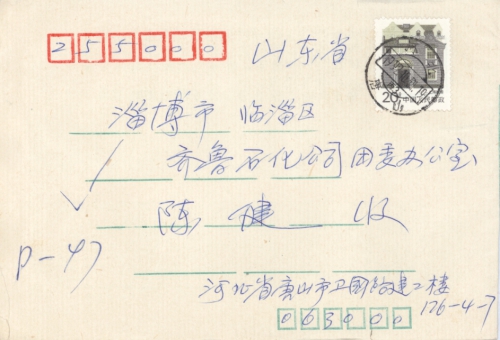 255000
山东省
淄博市 临淄区
齐鲁石化公司团委办公室
陈健 收
P-47
河北省唐山市卫国路建工楼
176-4-7
063000
20分
中国人民邮政